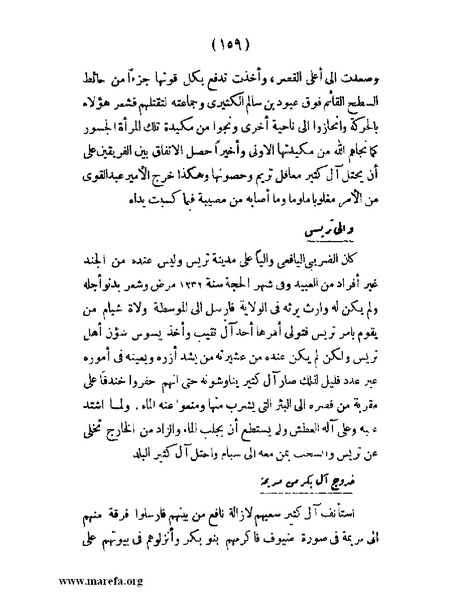 (١٥٩)
وصعدت الى أعلى القصر، وأخذت تدفع بكل قوتها جزءاً من حائط
السطح القائم فوق عبود بن سالم الكثيرى وجماعته لتقتلهم فشعر هؤلاء
بالحركة وانحازوا الى ناحية أخرى ونجوا من مكيدة تلك المرأة الجسور
كما نجاهم الله من مكيدتها الاولى وأخيراً حصل الاتفاق بين الفريقين على
أن يحتل آل كثير معاقل تريم وحصونها وهكذا خرج الأمير عبد القوى
من الأمر مغلوباً ملوما وما أصابه من مصيبة فيما كسبت يداه
والى تريس
كان الضربي اليافعى والياً على مدينة تريس وليس عنده من الجند
غير أفراد من العبيد وفى شهر الحجة سنة ١٢٣٢ مرض وشعر بدنو أجله
ولم يكن له وارث يرثه فى الولاية فارسل الى الموسطة ولاة شبام من
يقوم بامر تريس فتولى أمرها أحد آل نقيب وأخذ يسوس شؤن أهل
تريس ولكن لم يكن عنده من عشيرته من يشد أزره ويعينه فى أموره
غير عدد قليل لذلك صار آل كثير يناوشونه حتى انهم حفروا خندقاً على
مقربة من قصره الى البئر التى يشرب منها ومنعوا عنه الماء. ولما اشتد
عليه وعلى آله العطش ولم يستطع أن يجلب الماء والزاد من الخارج تخلى
عن تريس وانسحب بمن معه الى شبام واحتل آل كثير البلد
خروج آل بكر من مريمة
استأنف آل كثير سعيهم لازالة نافع من بينهم فارسلوا فرقة منهم
الى مريمة فى صورة ضيوف فاكرمهم بنو بكر وأنزلوهم فى بيوتهم على
www.marefa.org